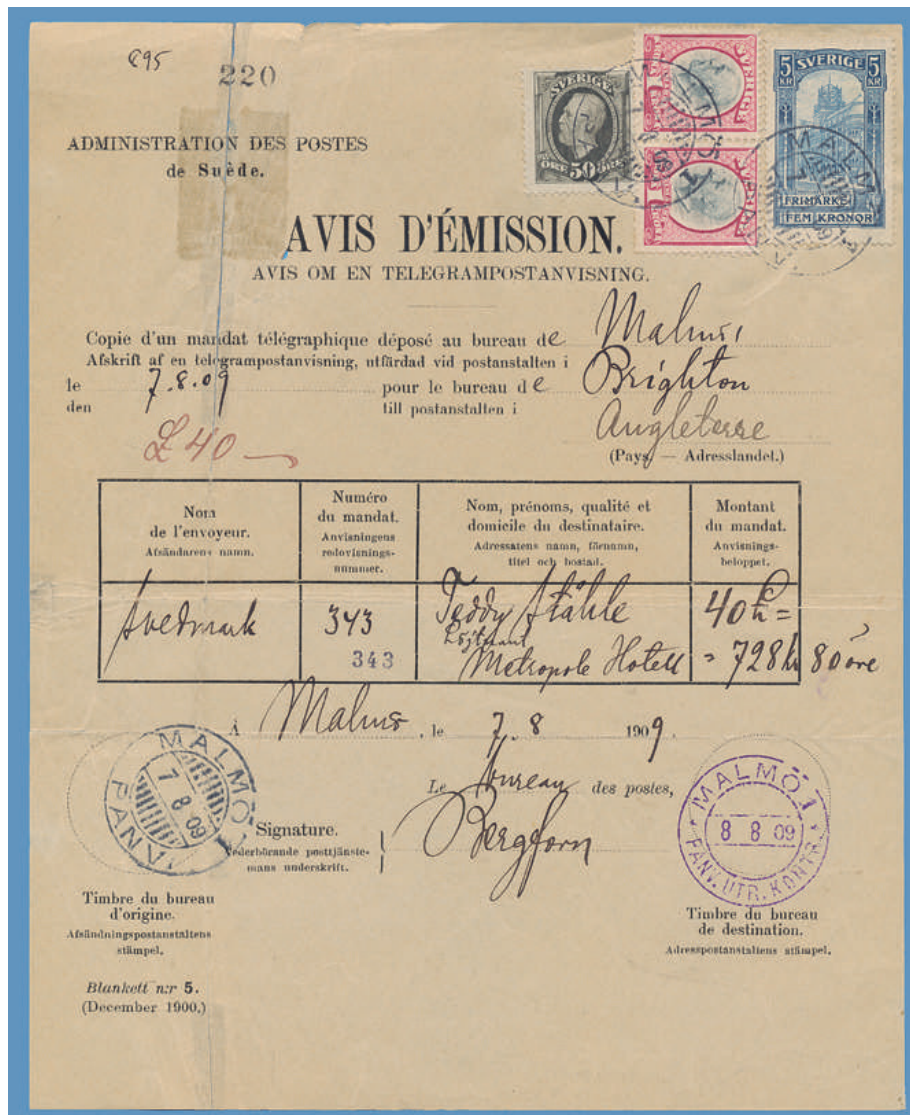 895
220
ADMINISTRATION DES POSTES
de Suède.
SVERIGE
ÖRE 50 ÖRE
5 KR SVERIGE 5 KR
FRIMÄRKE
FEM KRONOR
AVIS D'ÉMISSION.
AVIS OM EN TELEGRAMPOSTANVISNING.
Copie d'un mandat télégraphique déposé au bureau de Malmö 1
Afskrift af en telegrampostanvisning, utfärdad vid postanstalten i
le 7.8.09 pour le bureau de Brighton
den till postanstalten i
Angleterre
£ 40
(Pays — Adresslandet.)
Nom
de l'envoyeur.
Afsändarens namn.
Numéro
du mandat.
Anvisningens
redovisnings-
nummer.
Nom, prénoms, qualité et
domicile du destinataire.
Adressatens namn, förnamn,
titel och bostad.
Montant
du mandat.
Anvisnings-
beloppet.
Svedmark
343
343
Teddy Ståhle
Löjtnant
Metropole Hotell
40 £ =
= 728 kr 80 öre
À Malmö, le 7.8 1909.
Le bureau des postes,
Signature.
Vederbörande posttjänste-
mans underskrift.
MALMÖ 1
7 8 09
PANV.
MALMÖ 1
8 8 09
PANV. UTR. KONTR.
Timbre du bureau
d'origine.
Afsändningspostanstaltens
stämpel.
Timbre du bureau
de destination.
Adresspostanstaltens stämpel.
Blankett n:r 5.
(December 1900.)